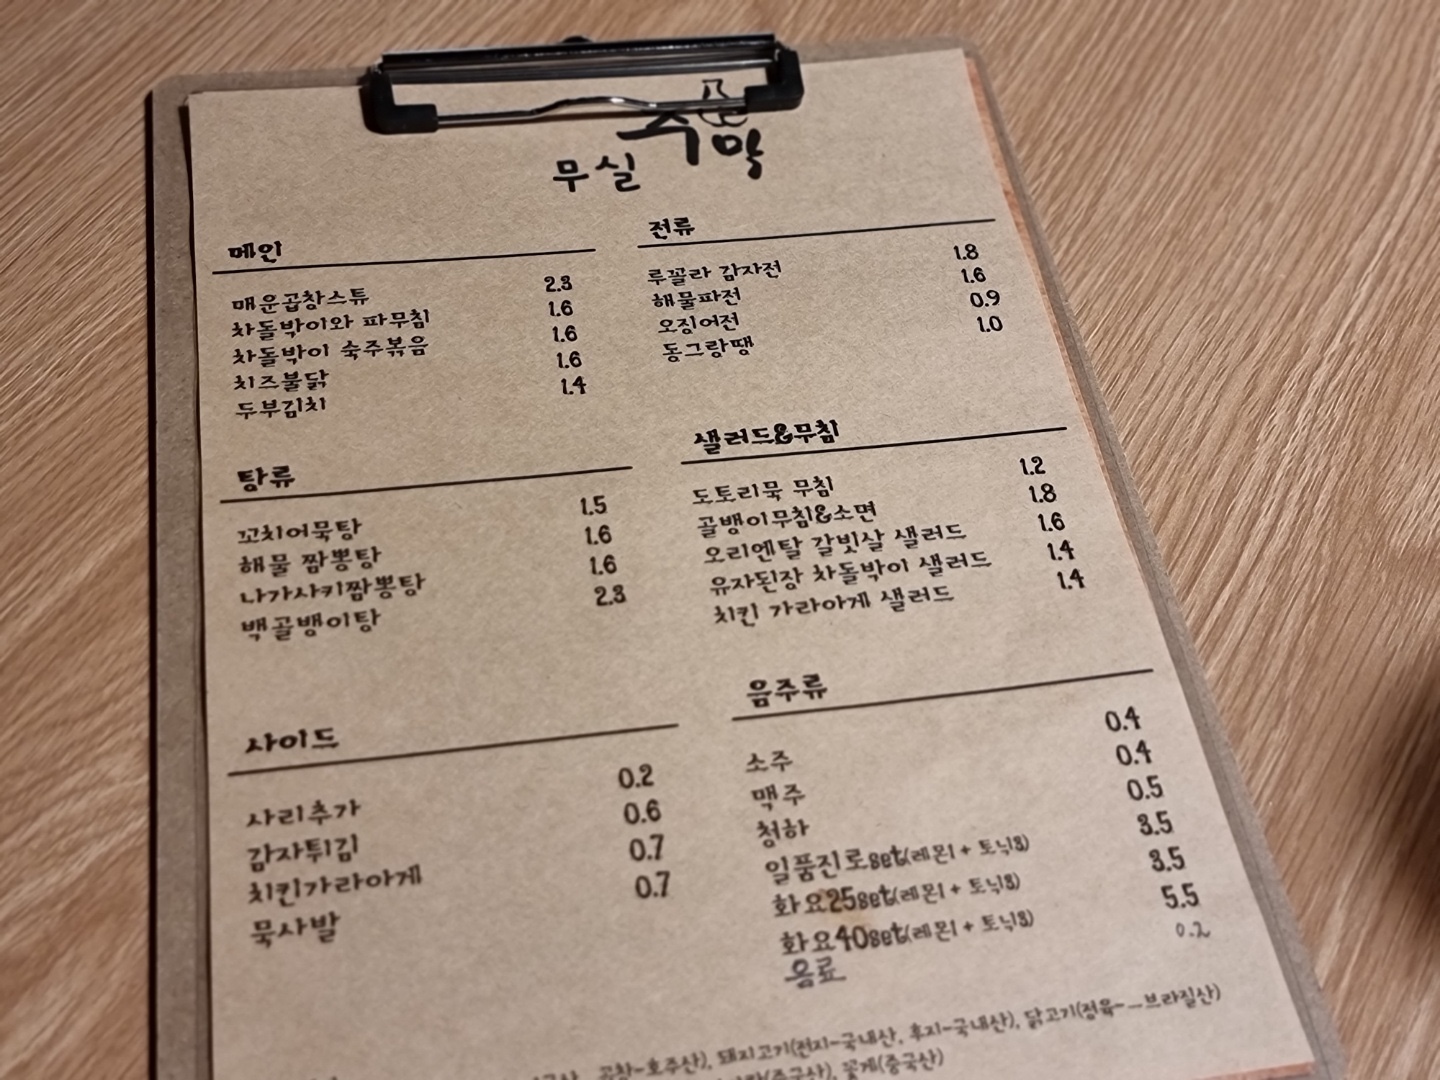 무실 주막
메인
매운곱창스튜 2.3
차돌박이와 파무침 1.6
차돌박이 숙주볶음 1.6
치즈불닭 1.6
두부김치 1.4
전류
루꼴라 감자전 1.8
해물파전 1.6
오징어전 0.9
동그랑땡 1.0
탕류
꼬치어묵탕 1.5
해물 짬뽕탕 1.6
나가사키짬뽕탕 1.6
백골뱅이탕 2.3
샐러드&무침
도토리묵 무침 1.2
골뱅이무침&소면 1.8
오리엔탈 갈빗살 샐러드 1.6
유자된장 차돌박이 샐러드 1.4
치킨 가라아게 샐러드 1.4
사이드
사리추가 0.2
감자튀김 0.6
치킨가라아게 0.7
묵사발 0.7
음주류
소주 0.4
맥주 0.4
청하 0.5
일품진로set(레몬1 + 토닉3) 3.5
화요25set(레몬1 + 토닉3) 3.5
화요40set(레몬1 + 토닉3) 5.5
음료 0.2
곱창-호주산), 돼지고기(전지-국내산, 후지-국내산), 닭고기(정육-브라질산)
(중국산), 꽃게(중국산)